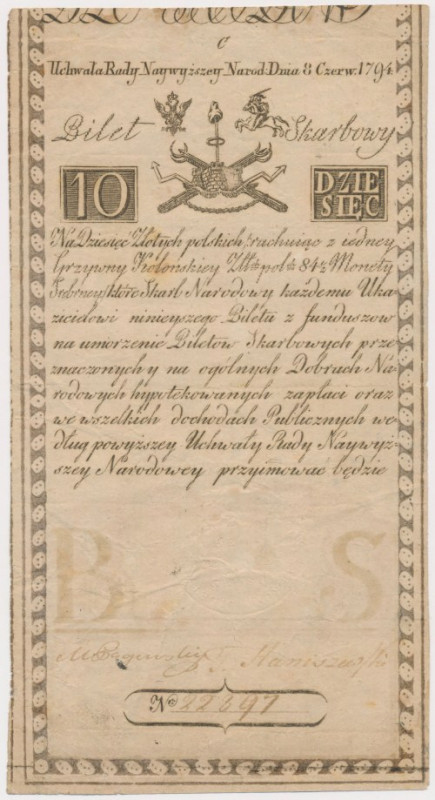 C
Uchwała Rady Naywyższey Narod: Dnia 8 Czerw: 1794
Bilet Skarbowy
10 DZIE
SIĘĆ
Na Dziesięć Złotych polskich, rachuiąc z iedney
Grzywny Kolońskiey Złł: pol: 84½ Monety
Srebrney, które Skarb Narodowy każdemu Uka-
zicielowi ninieyszego Biletu z funduszow
na umorzenie Biletow Skarbowych prze-
znaczonych y na ogólnych Dobrach Na-
rodowych hypotekowanych zapłaci oraz
we wszelkich dochodach Publicznych we-
dług powyższey Uchwały Rady Naywyż-
szey Narodowey przyimować będzie
B S
Staniszewski
No 22697